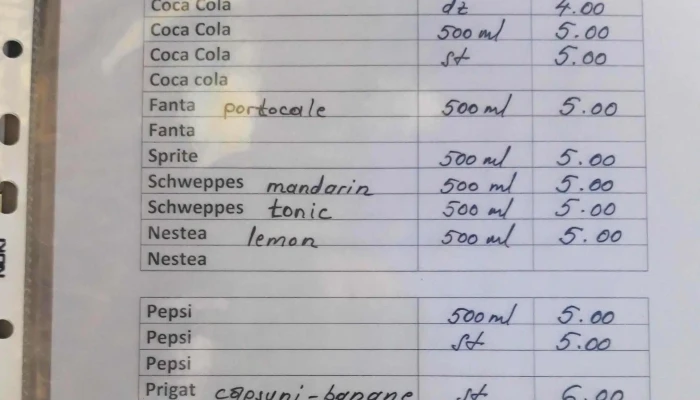 Coca Cola dz 4.00
Coca Cola 500 ml 5.00
Coca Cola st 5.00
Coca cola
Fanta portocale 500 ml 5.00
Fanta
Sprite 500 ml 5.00
Schweppes mandarin 500 ml 5.00
Schweppes tonic 500 ml 5.00
Nestea lemon 500 ml 5.00
Nestea
Pepsi 500 ml 5.00
Pepsi st 5.00
Pepsi
Prigat capsuni-banane st 6.00